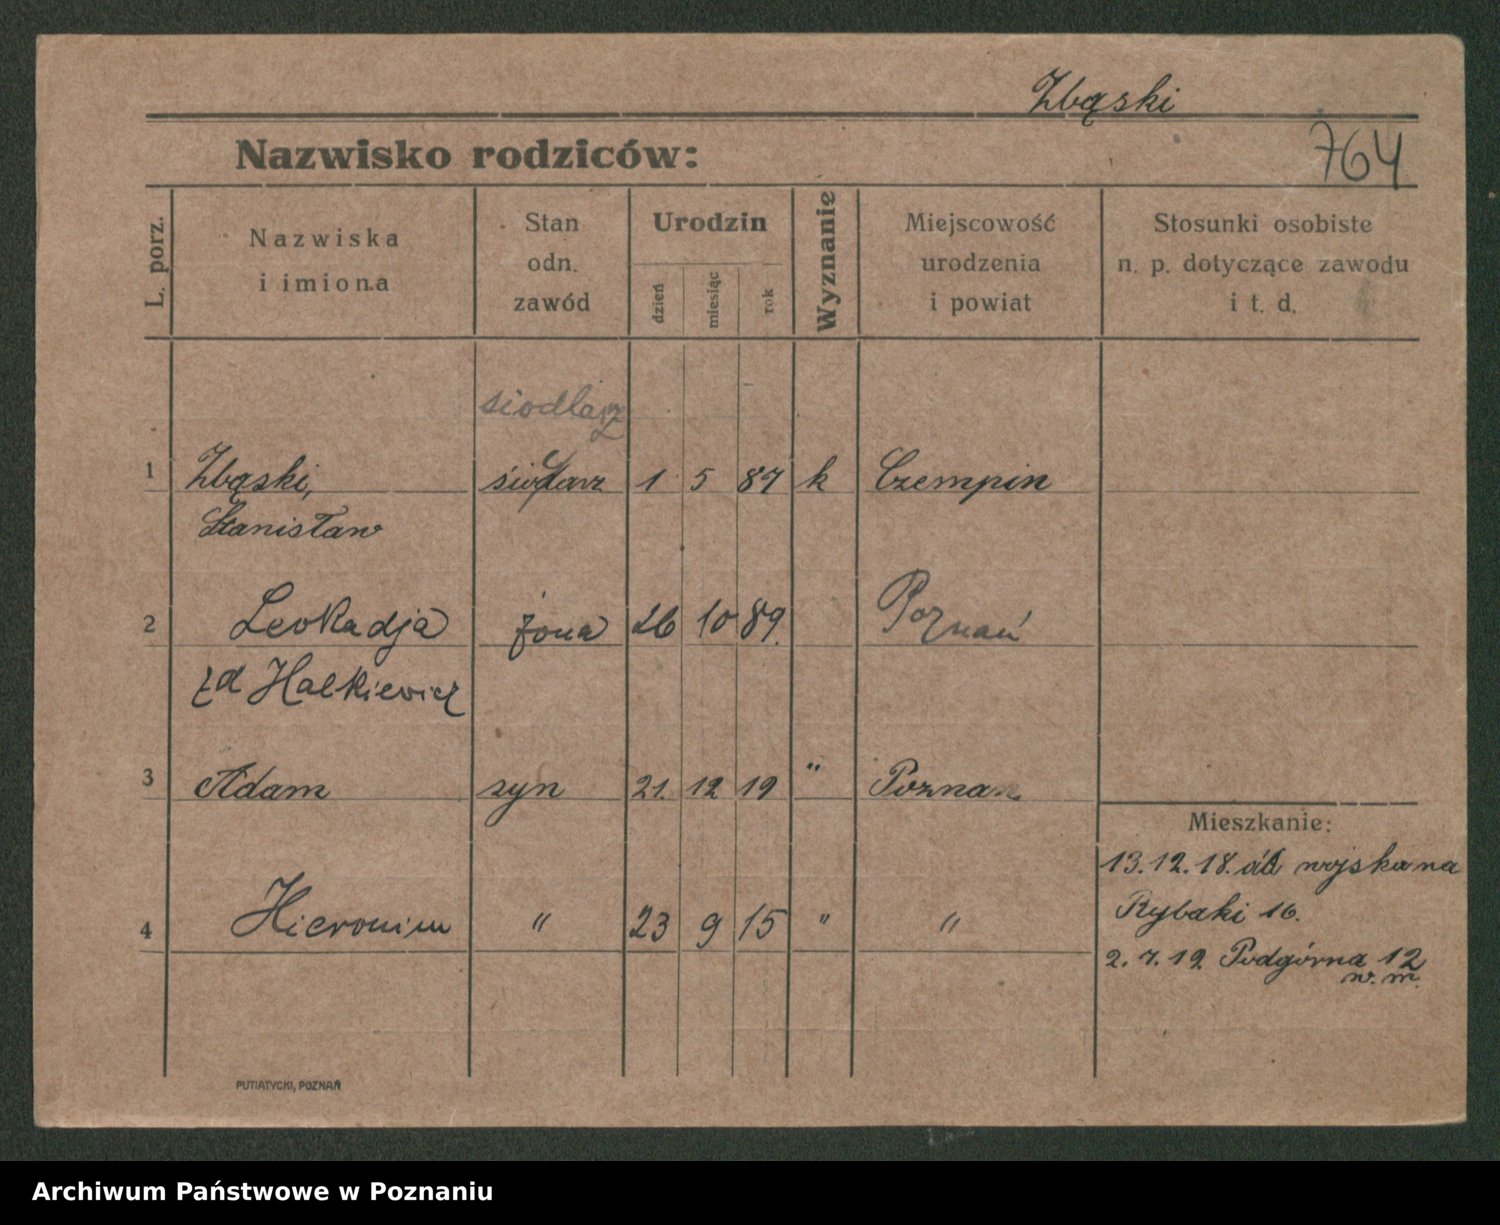 Zbąski
Nazwisko rodziców:
764
L. porz.
Nazwiska
i imiona
Stan
odn.
zawód
Urodzin
dzień
miesiąc
rok
Wyznanie
Miejscowość
urodzenia
i powiat
Stosunki osobiste
n. p. dotyczące zawodu
i t. d.
siodlarz
1 Zbąski, siodlarz 1 5 87 k Czempin
Stanisław
2 Leokadja żona 26 10 89. Poznań
zd Halkiewicz
3 Adam syn 21. 12 19 " Poznań
Mieszkanie:
13.12.18. od wojska na
4 Hieronim " 23 9 15 " "
Rybaki 16.
2.7.19 Podgórna 12
w. m.
PUTIATYCKI, POZNAŃ
Archiwum Państwowe w Poznaniu